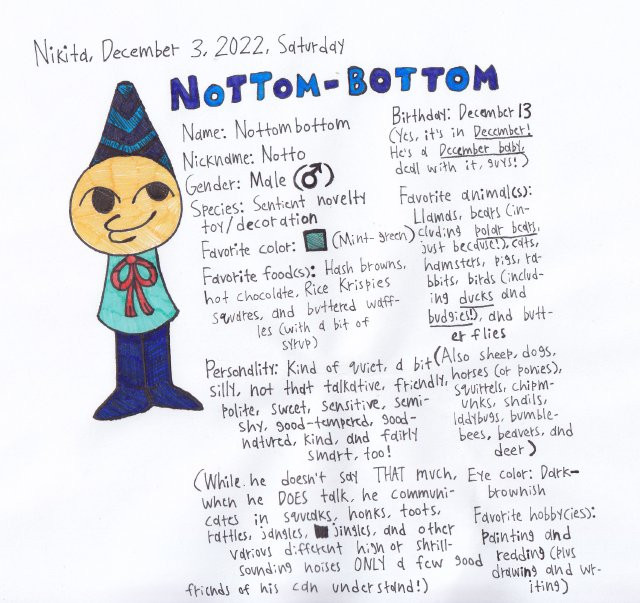 Nikita, December 3, 2022, Saturday
NOTTOM-BOTTOM
Name: Nottombottom
Nickname: Notto
Gender: Male (♂)
Species: Sentient novelty
toy/decoration
Favorite color: (Mint-green)
Favorite food(s): Hash browns,
hot chocolate, Rice Krispies
squares, and buttered waff-
les (with a bit of
syrup)
Personality: Kind of quiet, a bit
silly, not that talkative, friendly,
polite, sweet, sensitive, semi-
shy, good-tempered, good-
natured, kind, and fairly
smart, too!
(While he doesn't say THAT much,
when he DOES talk, he communi-
cates in squeaks, honks, toots,
rattles, jangles, jingles, and other
various different high or shrill-
sounding noises ONLY a few good
friends of his can understand!)
Birthday: December 13
(Yes, it's in December!
He's a December baby,
deal with it, guys!)
Favorite animal(s):
Llamas, bears (in-
cluding polar bears,
just because!), cats,
hamsters, pigs, ra-
bbits, birds (includ-
ing ducks and
budgies!), and butt-
erflies
(Also sheep, dogs,
horses (or ponies),
squirrels, chipm-
unks, snails,
ladybugs, bumble-
bees, beavers, and
deer)
Eye color: Dark-
brownish
Favorite hobby(ies):
Painting and
reading (plus
drawing and wr-
iting)